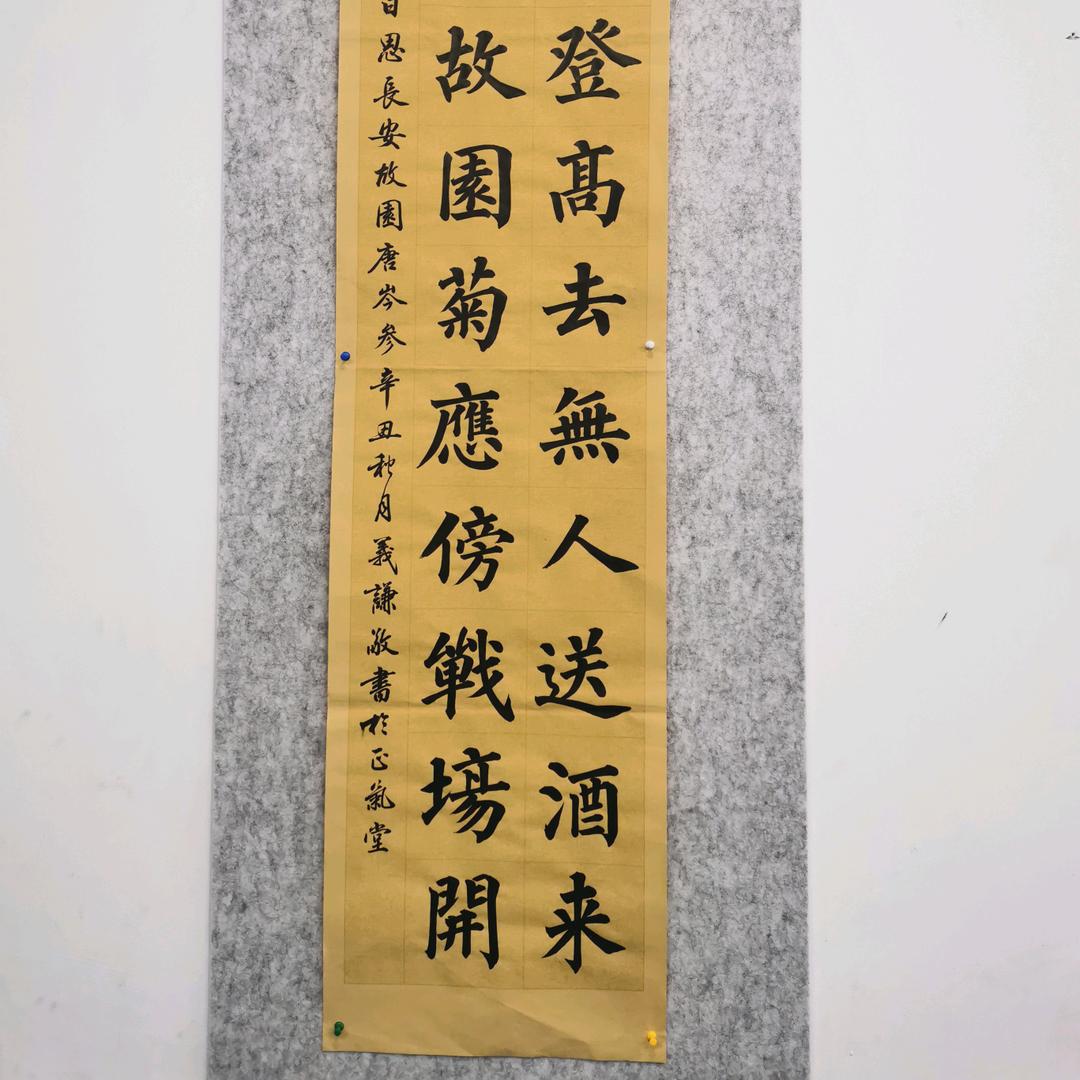 登高去無人送酒来
故園菊應傍戰場開
日思長安故園唐岑參辛丑秋月義謙敬書於正氣堂